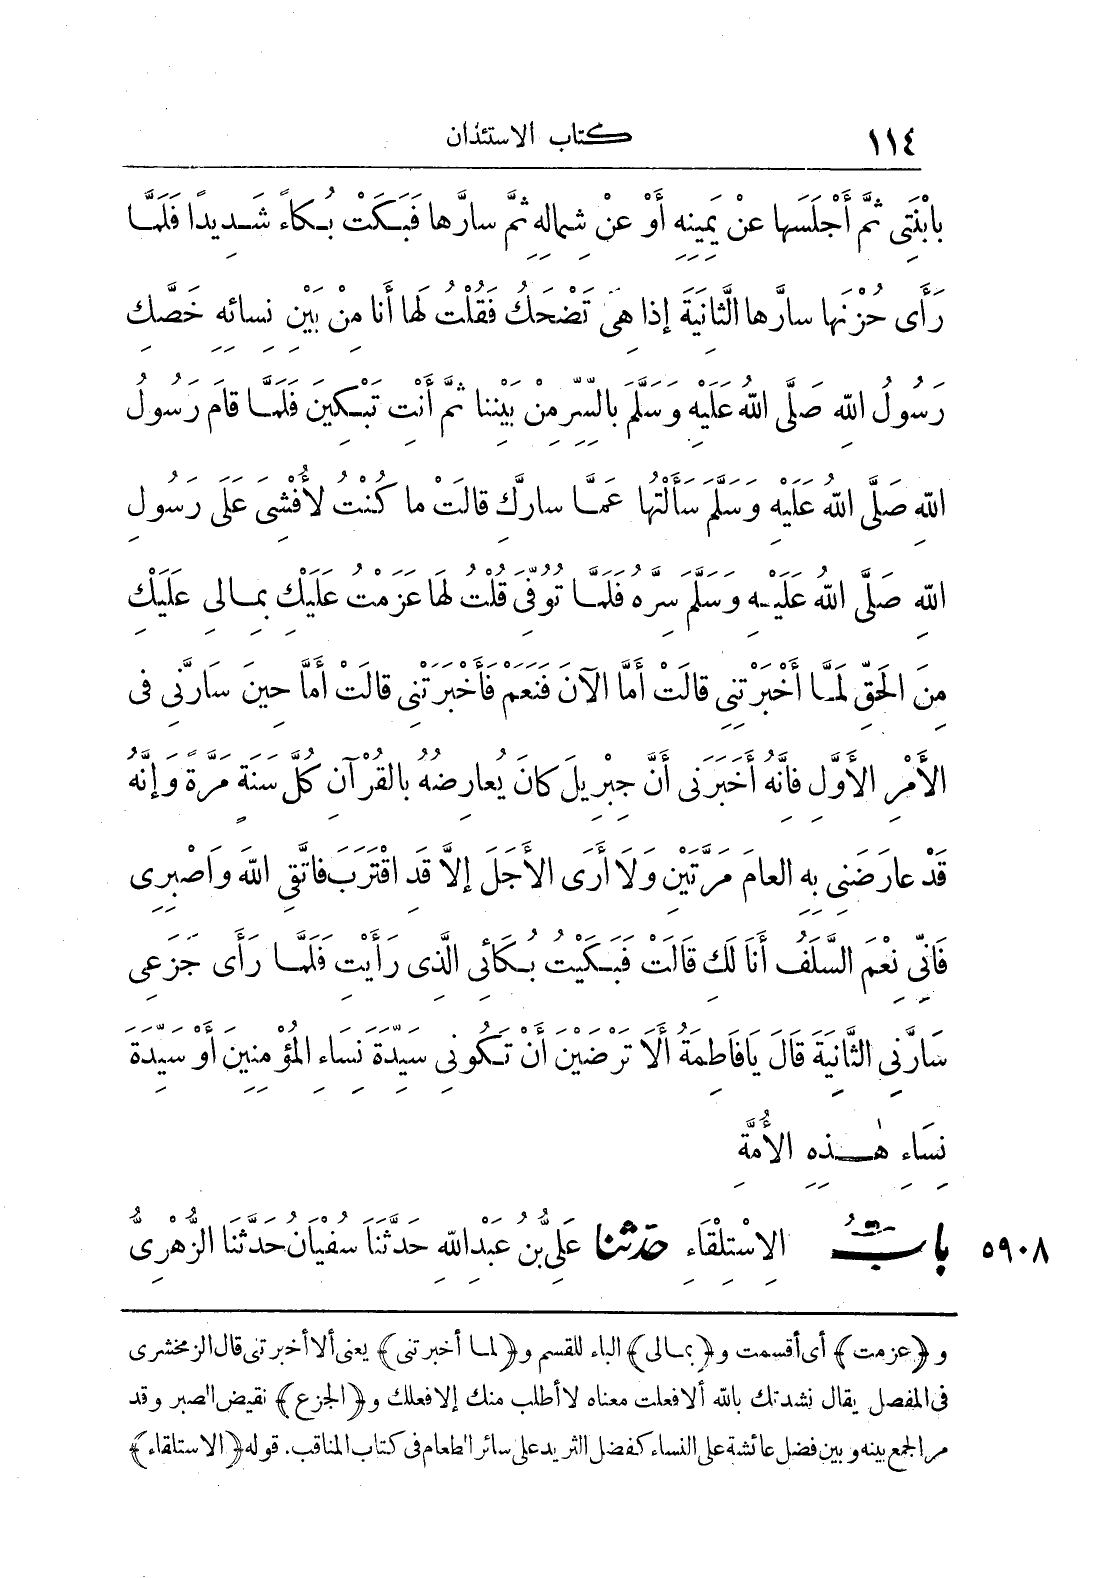 ١١٤ كتاب الاستئذان
بِابْنَتِى ثُمَّ أَجْلَسَها عَنْ يَمِينِهِ أَوْ عَنْ شِمالِهِ ثُمَّ سارَّها فَبَكَتْ بُكاءً شَدِيدًا فَلَمَّا
رَأَى حُزْنَها سارَّها الثَّانِيَةَ إِذا هِىَ تَضْحَكُ فَقُلْتُ لَها أَنا مِنْ بَيْنِ نِسائِهِ خَصَّكِ
رَسُولُ اللهِ صَلَّى اللهُ عَلَيْهِ وَسَلَّمَ بِالسِّرِّ مِنْ بَيْنِنا ثُمَّ أَنْتِ تَبْكِينَ فَلَمَّا قامَ رَسُولُ
اللهِ صَلَّى اللهُ عَلَيْهِ وَسَلَّمَ سَأَلْتُها عَمَّا سارَّكِ قالَتْ ما كُنْتُ لأُفْشِىَ عَلَى رَسُولِ
اللهِ صَلَّى اللهُ عَلَيْهِ وَسَلَّمَ سِرَّهُ فَلَمَّا تُوُفِّىَ قُلْتُ لَها عَزَمْتُ عَلَيْكِ بِمالى عَلَيْكِ
مِنَ الحَقِّ لَمَّا أَخْبَرْتِنِى قالَتْ أَمَّا الآنَ فَنَعَمْ فَأَخْبَرَتْنِى قالَتْ أَمَّا حِينَ سارَّنِى فى
الأَمْرِ الأَوَّلِ فَإِنَّهُ أَخْبَرَنِى أَنَّ جِبْرِيلَ كانَ يُعارِضُهُ بِالقُرْآنِ كُلَّ سَنَةٍ مَرَّةً وَإِنَّهُ
قَدْ عارَضَنِى بِهِ العامَ مَرَّتَيْنِ وَلَا أَرَى الأَجَلَ إِلَّا قَدِ اقْتَرَبَ فَاتَّقِى اللهَ وَاصْبِرِى
فَإِنِّى نِعْمَ السَّلَفُ أَنَا لَكِ قَالَتْ فَبَكَيْتُ بُكَائِى الَّذِى رَأَيْتِ فَلَمَّا رَأَى جَزَعِى
سَارَّنِى الثَّانِيَةَ قَالَ يَافَاطِمَةُ أَلَا تَرْضَيْنَ أَنْ تَكُونِى سَيِّدَةَ نِسَاءِ المُؤْمِنِينَ أَوْ سَيِّدَةَ
نِسَاءِ هٰذِهِ الأُمَّةِ
٥٩٠٨ بابُ الِاسْتِلْقَاءِ حدثنا عَلِىُّ بْنُ عَبْدِ اللهِ حَدَّثَنَا سُفْيَانُ حَدَّثَنَا الزُّهْرِىُّ
و﴿عزمت﴾ أى أقسمت و﴿بمالى﴾ الباء للقسم و﴿لما أخبرتنى﴾ يعنى ألا أخبرتنى قال الزمخشرى
فى المفصل يقال نشدتك بالله ألا فعلت معناه لا أطلب منك إلا فعلك و﴿الجزع﴾ نقيض الصبر وقد
مر الجمع بينه وبين فضل عائشة على النساء كفضل الثريد على سائر الطعام فى كتاب المناقب. قوله ﴿الاستلقاء﴾